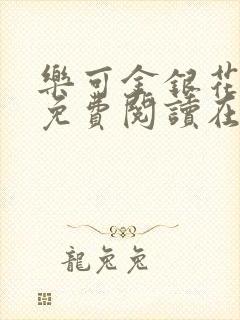 樂可金銀花
免費閱讀在
龍兔兔